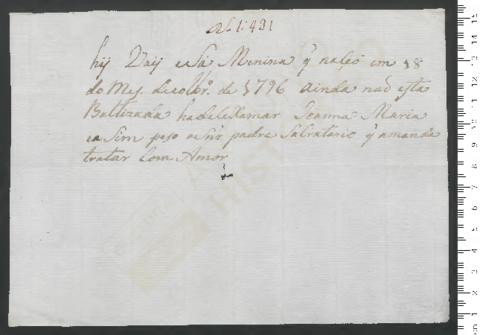 Nº 1:431
hij Vaij esta Menina ÿ naseo em 18
do Mes de outbrº. de 1796 ainda naõ esta
Bautizada hadesellamar Joanna Maria
easim peso a snr padre Saluatario ÿ amanda
tratar Com Amor